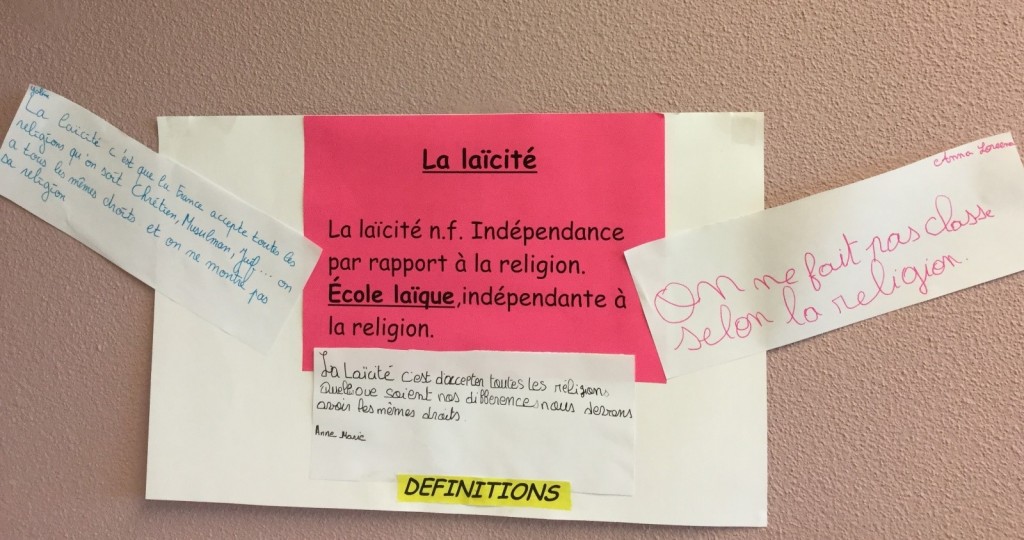 La laicité c'est que la France accepte toutes les
religions qu'on soit Chrétien, Musulman, Juif... on
a tous les mêmes droits et on ne montre pas
sa religion
La laïcité
La laïcité n.f. Indépendance
par rapport à la religion.
École laïque,indépendante à
la religion.
La Laïcité c'est d'accepter toutes les réligions
Quelleque soient nos differences nous devons
avoir les mêmes droits.
Anne Marie
DEFINITIONS
Anna Loreena
On ne fait pas classe
selon la religion.